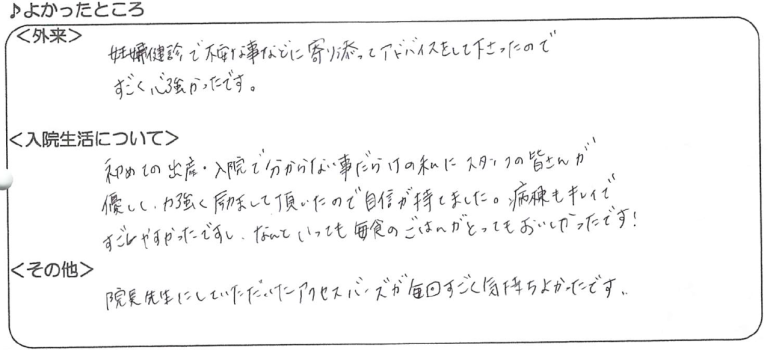 ♪よかったところ
<外来>
妊婦健診で不安な事などに寄り添ってアドバイスをして下さったので
すごく心強かったです。
<入院生活について>
初めての出産・入院で分からない事だらけの私にスタッフの皆さんが
優しく、力強く励まして頂いたので自信が持てました。病棟もキレイで
すごしやすかったですし、なんといっても毎食のごはんがとってもおいしかったです!
<その他>
院長先生にしていただいたアクセスバーズが毎回すごく気持ちよかったです。